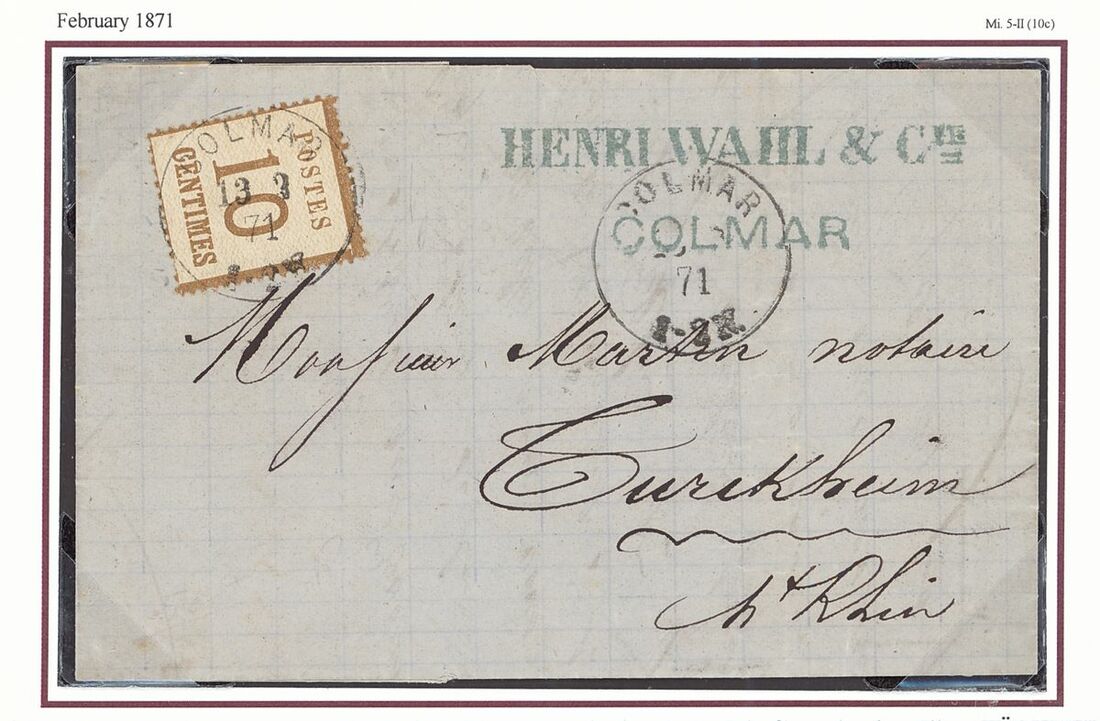 February 1871
Mi. 5-II (10c)
HENRI WAHL & CIE
COLMAR
POSTES
10
CENTIMES
COLMAR
13 3
71
1-2N
COLMAR
71
1-2N.
Monsieur Martin notaire
Turckheim
ht Rhin